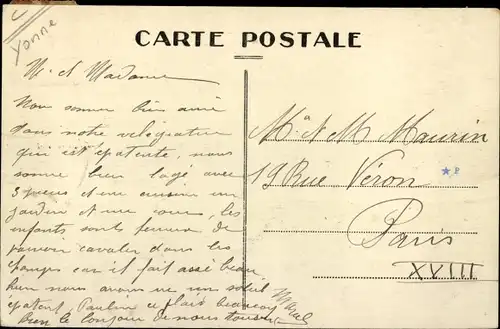 Yonne
CARTE POSTALE
M. et Madame
Nous somme bien arivé
dans notre vilégiature
qui est épatente, nous
somme bien logé avec
3 pieces et une cuisine un
jardin et une cour, les
enfants sont heureux de
pouvoir cavaler dans les
champs car il fait assé beau
hier nous avons eu un soleil
épatent, Paulin ce plait beaucoup
Bien le bonjour de nous tous
Mr M Maurin
19 Rue Véron
Paris
XVIII